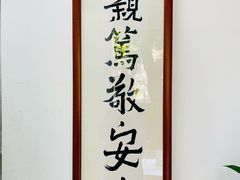 親篤敬安